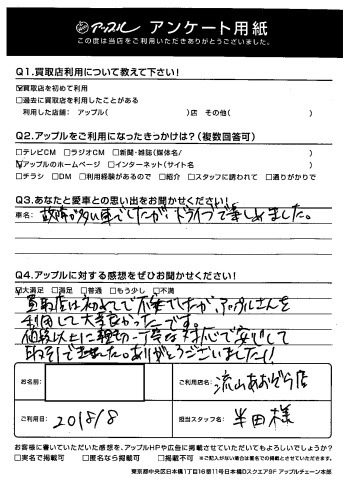 アップル アンケート用紙
この度は当店をご利用いただきありがとうございました。
Q1.買取店利用について教えて下さい!
☑買取店を初めて利用
□過去に買取店を利用したことがある
利用した店舗: アップル( )店 その他( )
Q2.アップルをご利用になったきっかけは?(複数回答可)
□テレビCM □ラジオCM □新聞・雑誌(媒体名/ )
☑アップルのホームページ □インターネット(サイト名 )
□チラシ □DM □利用経験があるので □紹介 □スタッフに誘われて □通りがかりで
Q3.あなたと愛車との思い出をお聞かせください!
車名: 故障が多い車でしたが、ドライブで楽しめました。
Q4.アップルに対する感想をぜひお聞かせください!
☑大満足 □満足 □普通 □もう少し □不満
買取店は初めてで不安でしたが、アップルさんを
利用して大変良かったです。
値段以上に親切、丁寧な対応で安心して
取引できました。ありがとうございました!!
お名前:
ご利用店名: 流山あおぞら店
ご利用日: 2018/8
担当スタッフ名: 半田様
お客様に書いていただいた感想を、アップルHPや広告に掲載させていただいてもよろしいでしょうか?
□実名で掲載可 □匿名なら掲載可 □掲載不可 ※ご記入がない場合は匿名での掲載とさせていただきます。
東京都中央区日本橋1丁目16番11号日本橋Dスクエア9F アップルチェーン本部